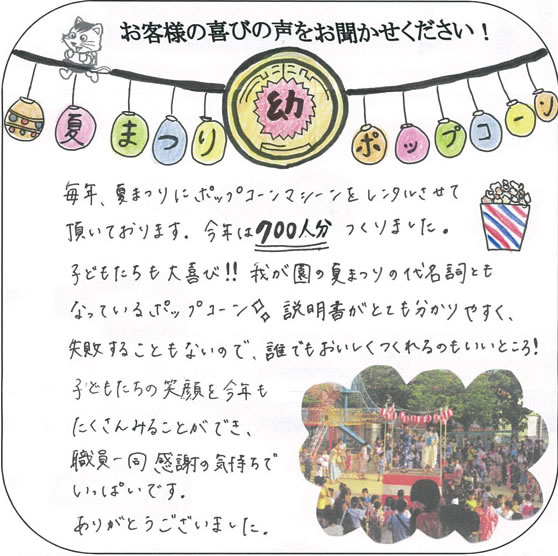 お客様の喜びの声をお聞かせください！
夏まつり 幼 ポップコーン
毎年、夏まつりにポップコーンマシーンをレンタルさせて
頂いております。今年は700人分つくりました。
子どもたちも大喜び!! 我が園の夏まつりの代名詞とも
なっているポップコーン✨ 説明書がとても分かりやすく、
失敗することもないので、誰でもおいしくつくれるのもいいところ!
子どもたちの笑顔を今年も
たくさんみることができ、
職員一同 感謝の気持ちで
いっぱいです。
ありがとうございました。